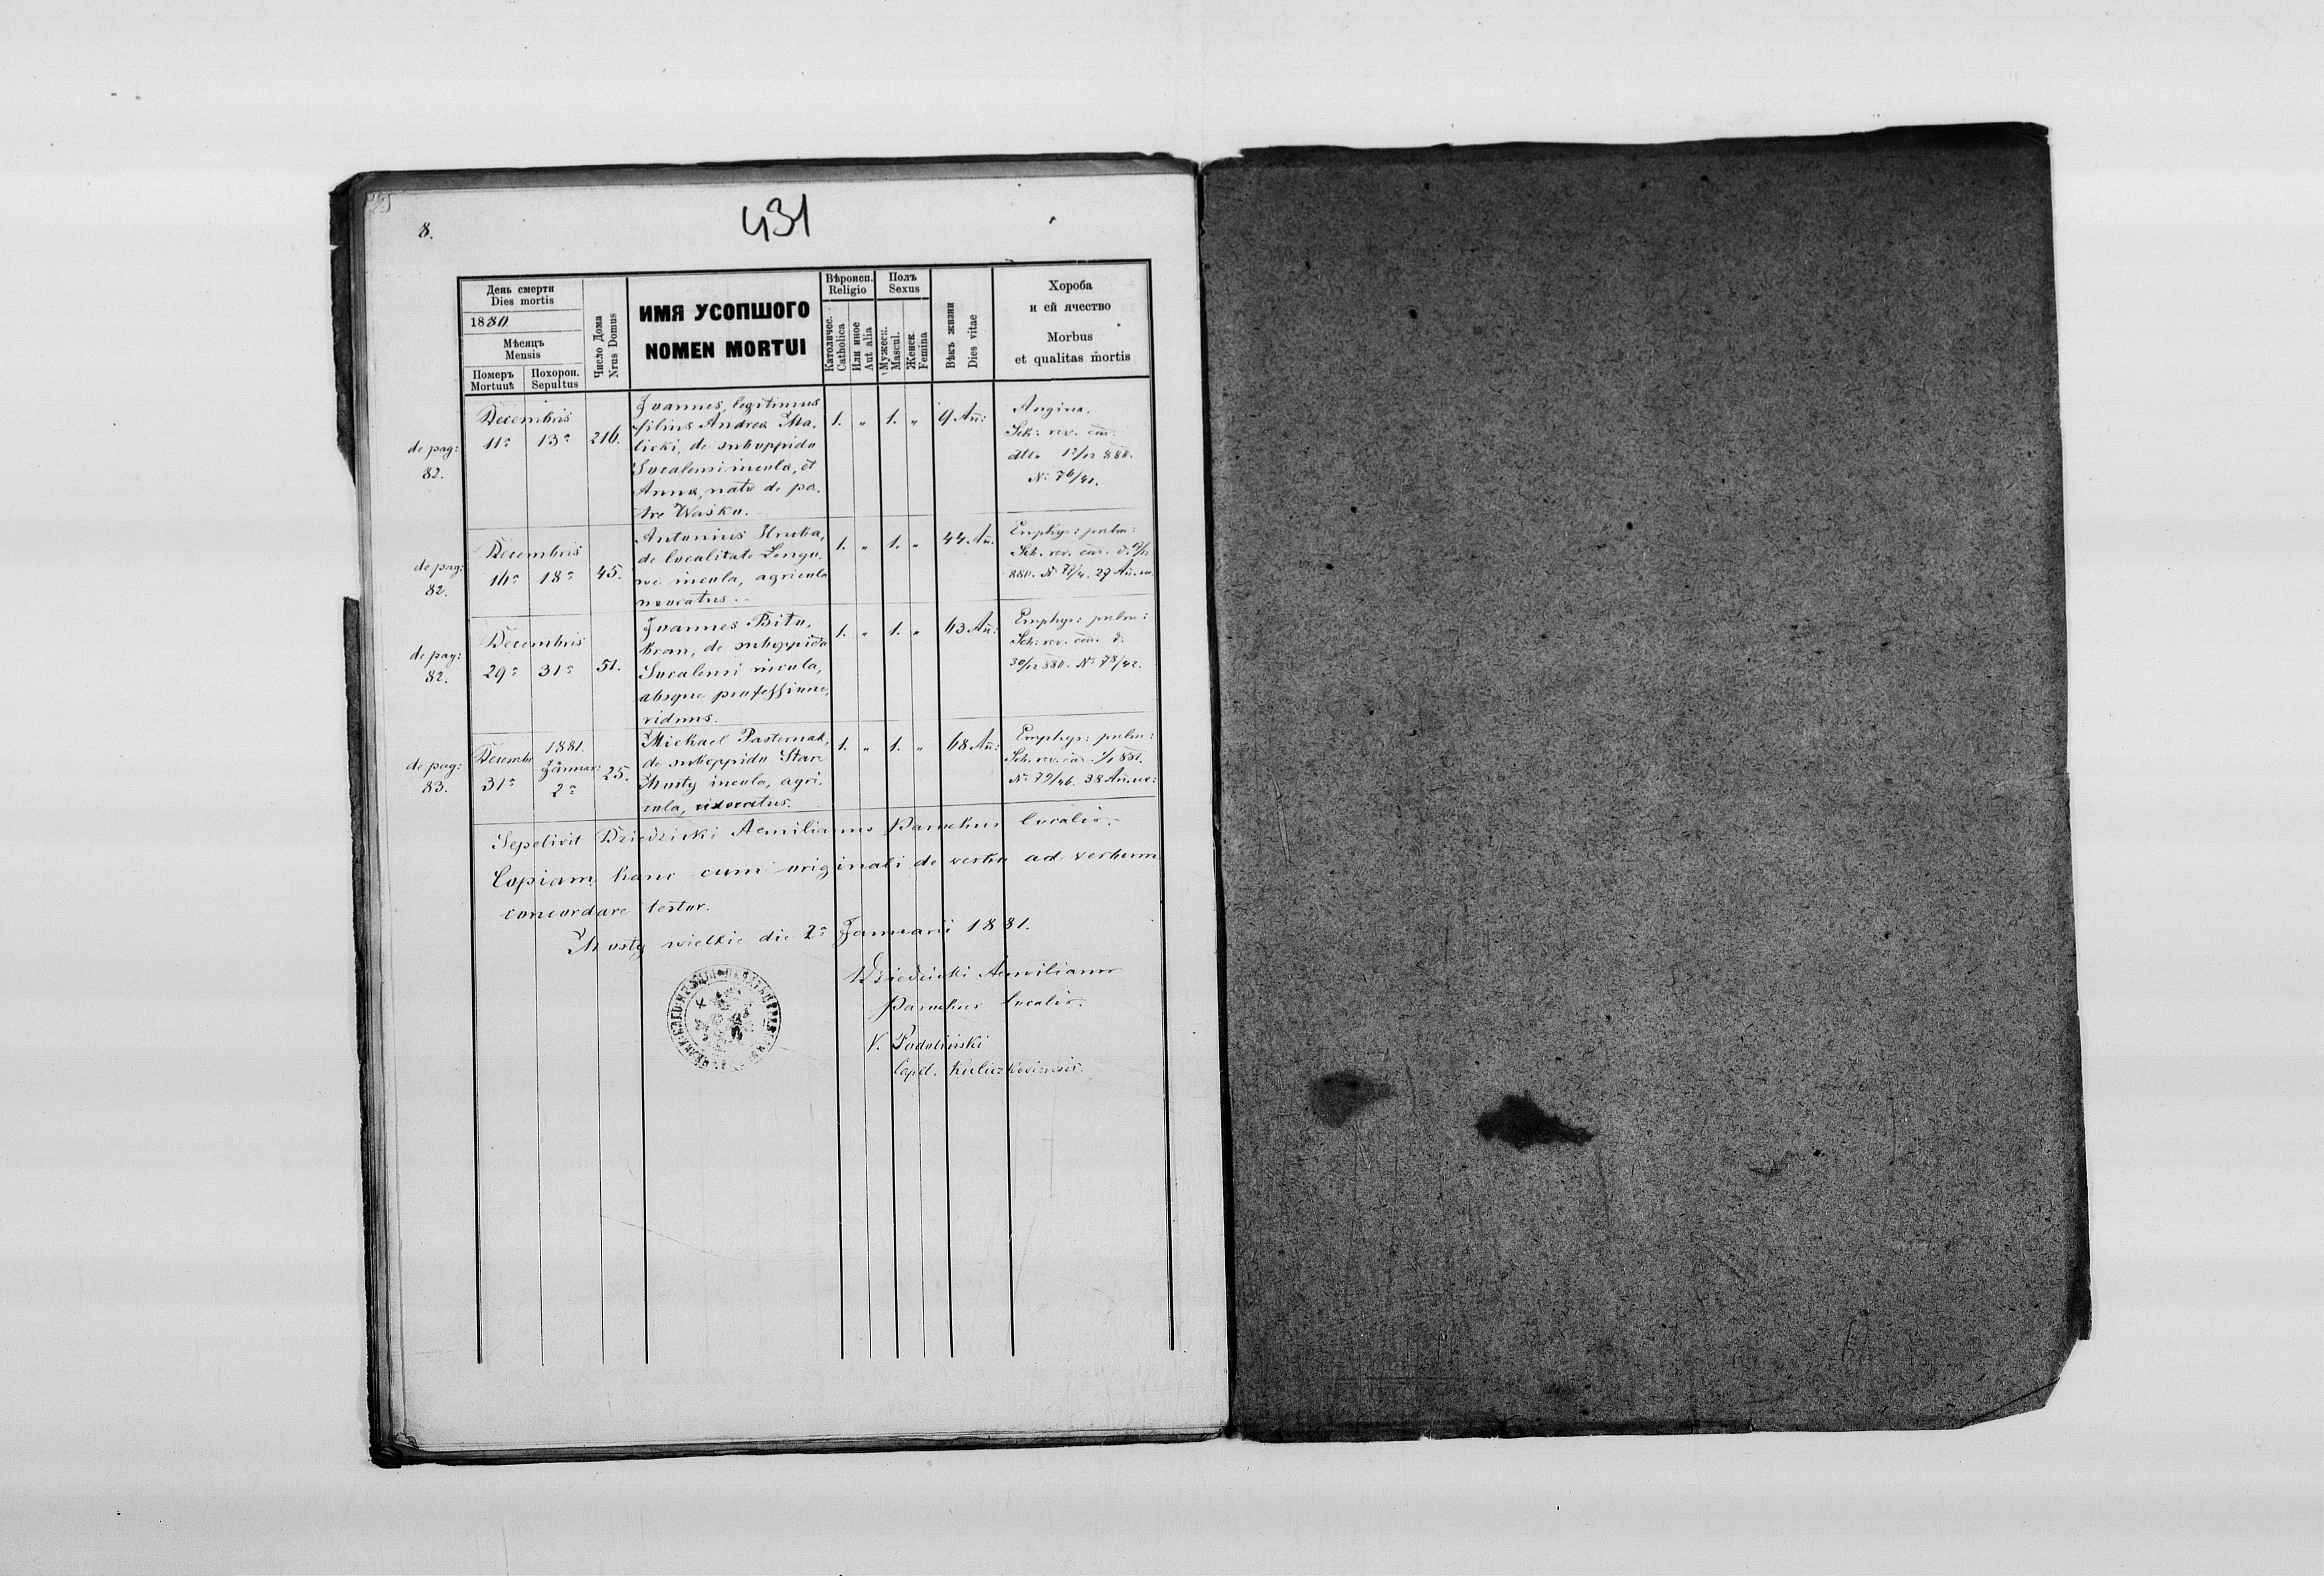 8.
431
День смерти
Dies mortis
1880
Мѣсяцъ
Mensis
Померъ
Mortuus
Похорон.
Sepultus
Число Дома
Nrus Domus
ИМЯ УСОПШОГО
NOMEN MORTUI
Вѣроисп.
Religio
Католичес.
Catholica
Или иное
Aut alia
Полъ
Sexus
Мужеск.
Mascul.
Женск.
Femina
Вѣкъ жизни
Dies vitae
Хороба
и ей ячество
Morbus
et qualitas mortis
de pag:
82.
Decembris
11a 13a 216.
Joannes, legitimus
filius Andreæ Ma-
licki, de suboppido
Socalensi incola, et
Anna, nata de pa-
tre Wasko.
1. „ 1. „ 9 An:
Angina.
Sch: rev. cад:
dtto 12/12 880.
N: 76/41.
de pag:
82.
Decembris
16a 18a 45.
Antonius Hruba,
de localitate
incola, agricola
uxoratus.
1. „ 1. „ 44 An.
Emphys: pulm:
Sch. rev. cad. d.
880. N. 27 An. ux.
de pag:
82.
Decembris
29a 31a 51.
Joannes Bito-
bran, de suboppido
Socalensi incola,
absque professione,
viduus.
1. „ 1. „ 63 An:
Emphys: pulm:
Sch: rev. cad. d.
30/12 880. N: 78/42.
de pag:
83.
Decembr
31a
1881.
Januar:
2a
25.
Michael Pasternak,
de suboppido Stare
Mosty incola, agri-
cola, uxoratus.
1. „ 1. „ 68 An:
Emphys: pulm:
Sch. rev. cad 1/1 881.
N: 79/46. 38 An. ux:
Sepelivit Dziedzicki Aemilianus Parochus localis.
Copiam hanc cum originali de verbo ad verbum
concordare testor.
Mosty wielkie die 2a Januarii 1881.
Dziedzicki Aemilianus
Parochus localis.
V. Podoliński